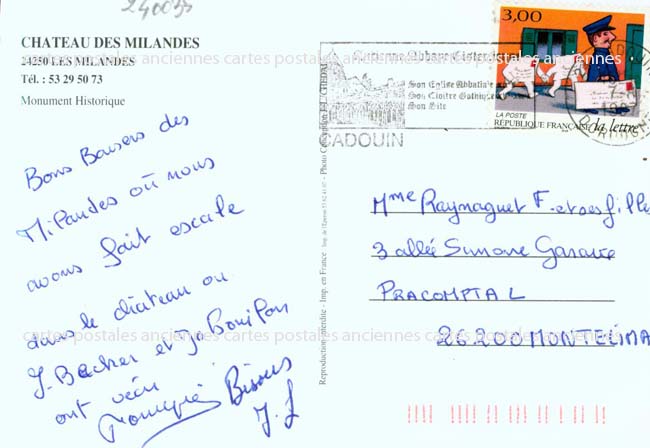 240055
CHATEAU DES MILANDES
24250 LES MILANDES
Tél. : 53 29 50 73
Monument Historique
Bons Baisers des
Milandes où nous
avons fait escale
dans le château ou
J. Backer et Jo Bouillon
ont vécu
Bisous
J. J
Reproduction interdite - Imp. en France
Photo Conception J-L.
Abbaye
Son Eglise Abbatiale
Son Cloitre Gothique
Son Site
CADOUIN
3,00
LA POSTE
RÉPUBLIQUE FRANÇAISE
la lettre
Mme Raynaguet F. et ses filles
3 allée Simone
PRACOMPTAL
26200 MONTELIMA
cartes postales anciennes cartes postales anciennes cartes postales anciennes
cartes postales anciennes cartes postales anciennes cartes postales anciennes